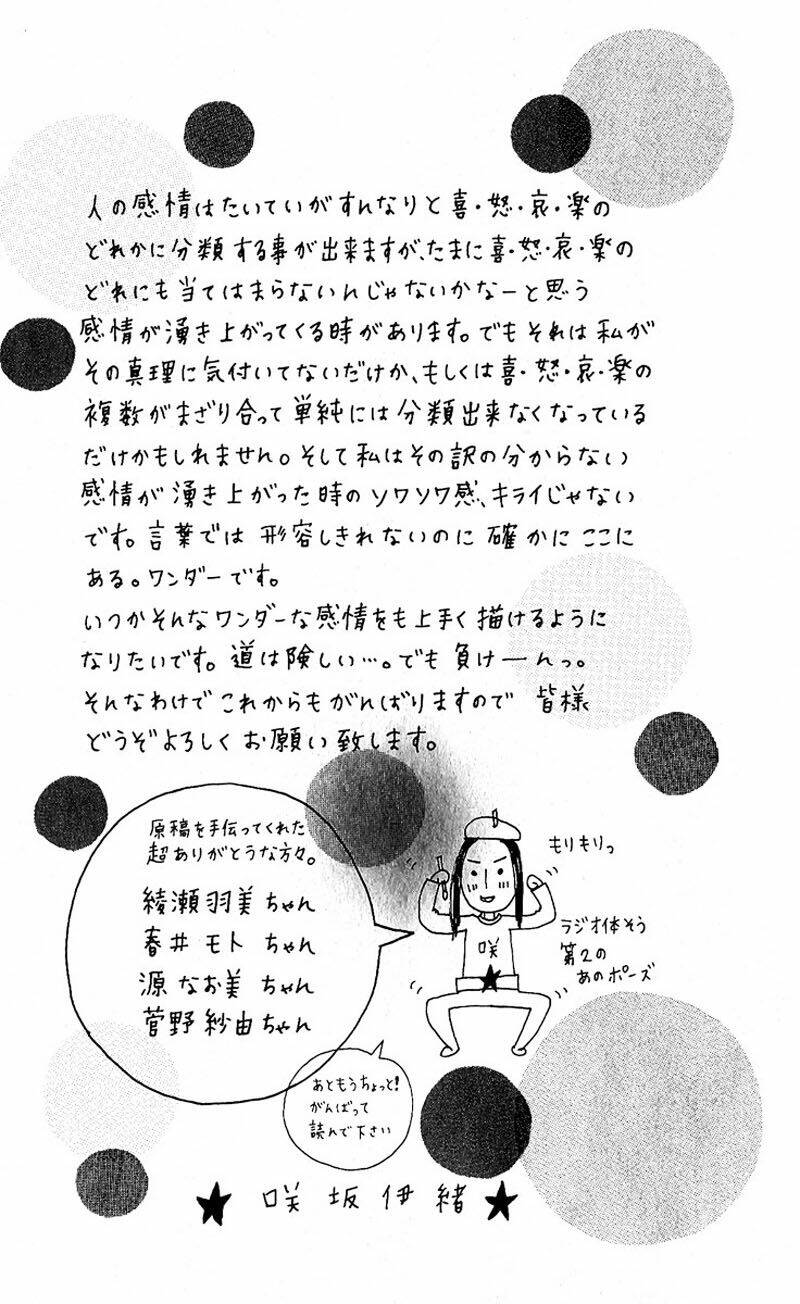 人の感情はたいていがすんなりと喜・怒・哀・楽の
どれかに分類する事が出来ますが、たまに喜・怒・哀・楽の
どれにも当てはまらないんじゃないかなーと思う
感情が湧き上がってくる時があります。でもそれは私が
その真理に気付いてないだけか、もしくは喜・怒・哀・楽の
複数がまざり合って単純には分類出来なくなっている
だけかもしれません。そして私はその訳の分からない
感情が湧き上がった時のソワソワ感、キライじゃない
です。言葉では形容しきれないのに確かにここに
ある。ワンダーです。
いつかそんなワンダーな感情をも上手く描けるように
なりたいです。道は険しい…。でも負けーんっ。
そんなわけでこれからもがんばりますので 皆様
どうぞよろしくお願い致します。
原稿を手伝ってくれた
超ありがとうな方々。
綾瀬羽美ちゃん
春井モトちゃん
源なお美ちゃん
菅野紗由ちゃん
もりもりっ
咲
ラジオ体そう
第2の
あのポーズ
あともうちょっと!
がんばって
読んで下さい
★ 咲坂伊緒 ★